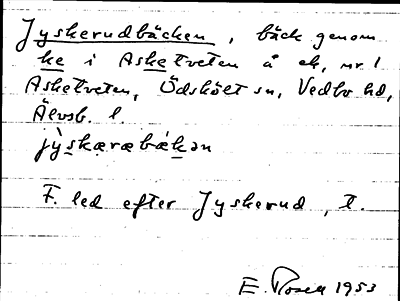 Jyskerudbäcken, bäck genom
ke i Asketveten å ek, nr. 1
Asketveten, Ödskölt sn, Vedbo hd,
Älvsb. l.
jỳskæræbæ̀kən
F. led efter Jyskerud, t.
E. Rosell 1953